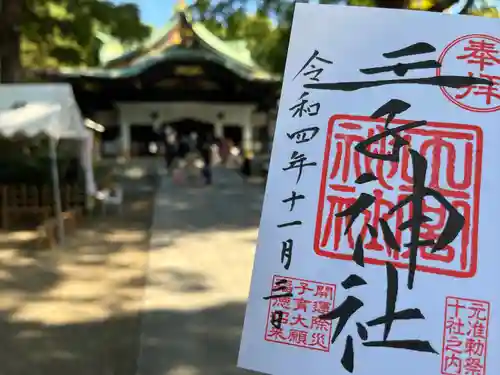 奉拝
王子神社
令和四年十一月三日
元准勅祭
十社之内
開運除災
子育大願